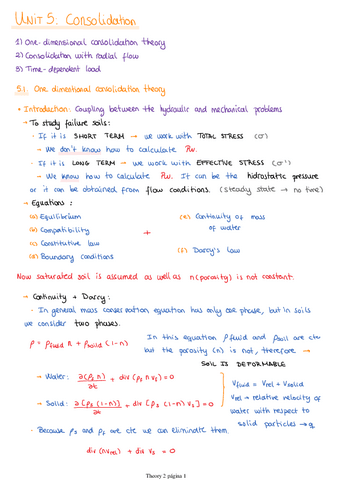 UNIT 5: Consolidation
1) One-dimensional consolidation theory
2) Consolidation with radial flow
3) Time-dependent load
5.1. One dimentional consolidation theory
• Introduction: Coupling between the hydraulic and mechanical problems
→ To study failure soils:
- If it is SHORT TERM → we work with TOTAL STRESS (σ)
→ We don't know how to calculate Pw.
- If it is LONG TERM → we work with EFFECTIVE STRESS (σ')
→ We know how to calculate Pw. It can be the hidrostatic pressure
or it can be obtained from flow conditions. (steady state → no time)
→ Equations:
(a) Equilibrium
(e) Continuity of mass
of water
(b) Compatibility
+
(c) Constitutive law
(f) Darcy's Law
(d) Boundary conditions
Now saturated soil is assumed as well as n (porosity) is not constant.
→ Continuity + Darcy:
- In general mass conservation equation has only one phase, but in soils
we consider two phases.
ρ = ρfluid n + ρsolid (1-n)
In this equation ρfluid and ρsoil are cte
but the porosity (n) is not, therefore →
SOIL IS DEFORMABLE
→ Water: ∂(ρf n)/∂t + div (ρf n vf) = 0
→ Solid: ∂(ρs (1-n))/∂t + div (ρs (1-n) vs) = 0
Vfluid = Vrel + Vsolid
Vrel → relative velocity of
water with respect to
solid particles → q
- Because ρs and ρf are cte we can eliminate them.
div (nvrel) + div vs = 0
Theory 2 página 1